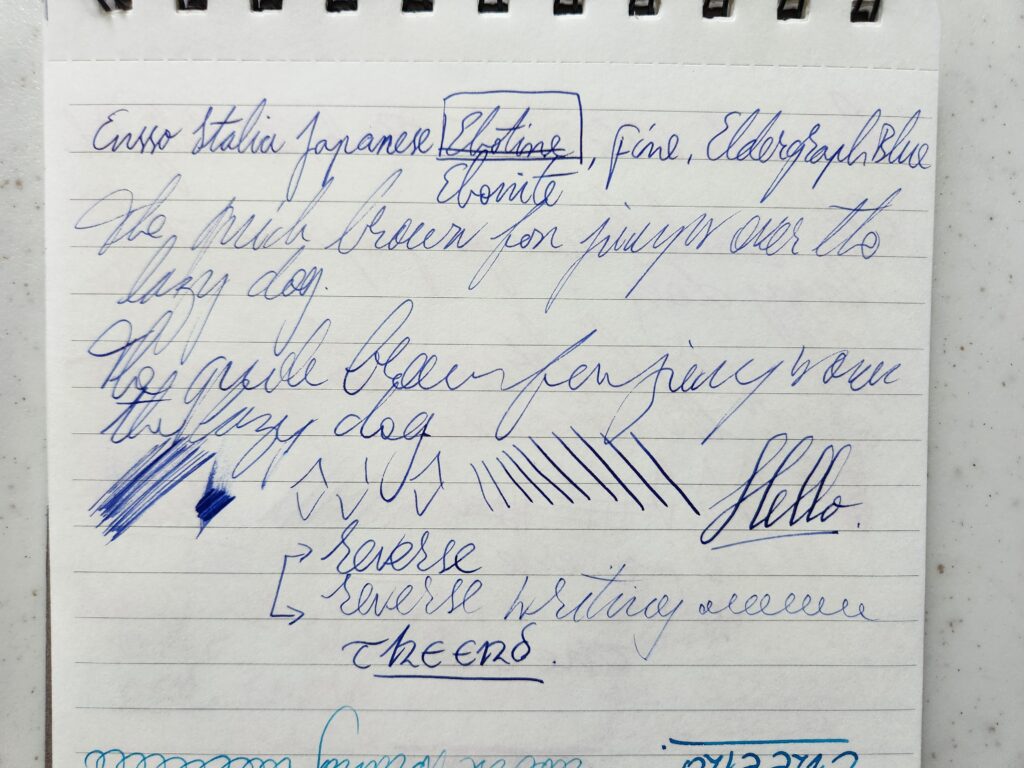 Ensso Italia Japanese Ebotine, Fine, Eldergraph Blue
Ebonite
The quick brown fox jumps over the
lazy dog.
The quick brown fox jumps over
the lazy dog
Hello.
reverse
reverse writing
THE END.